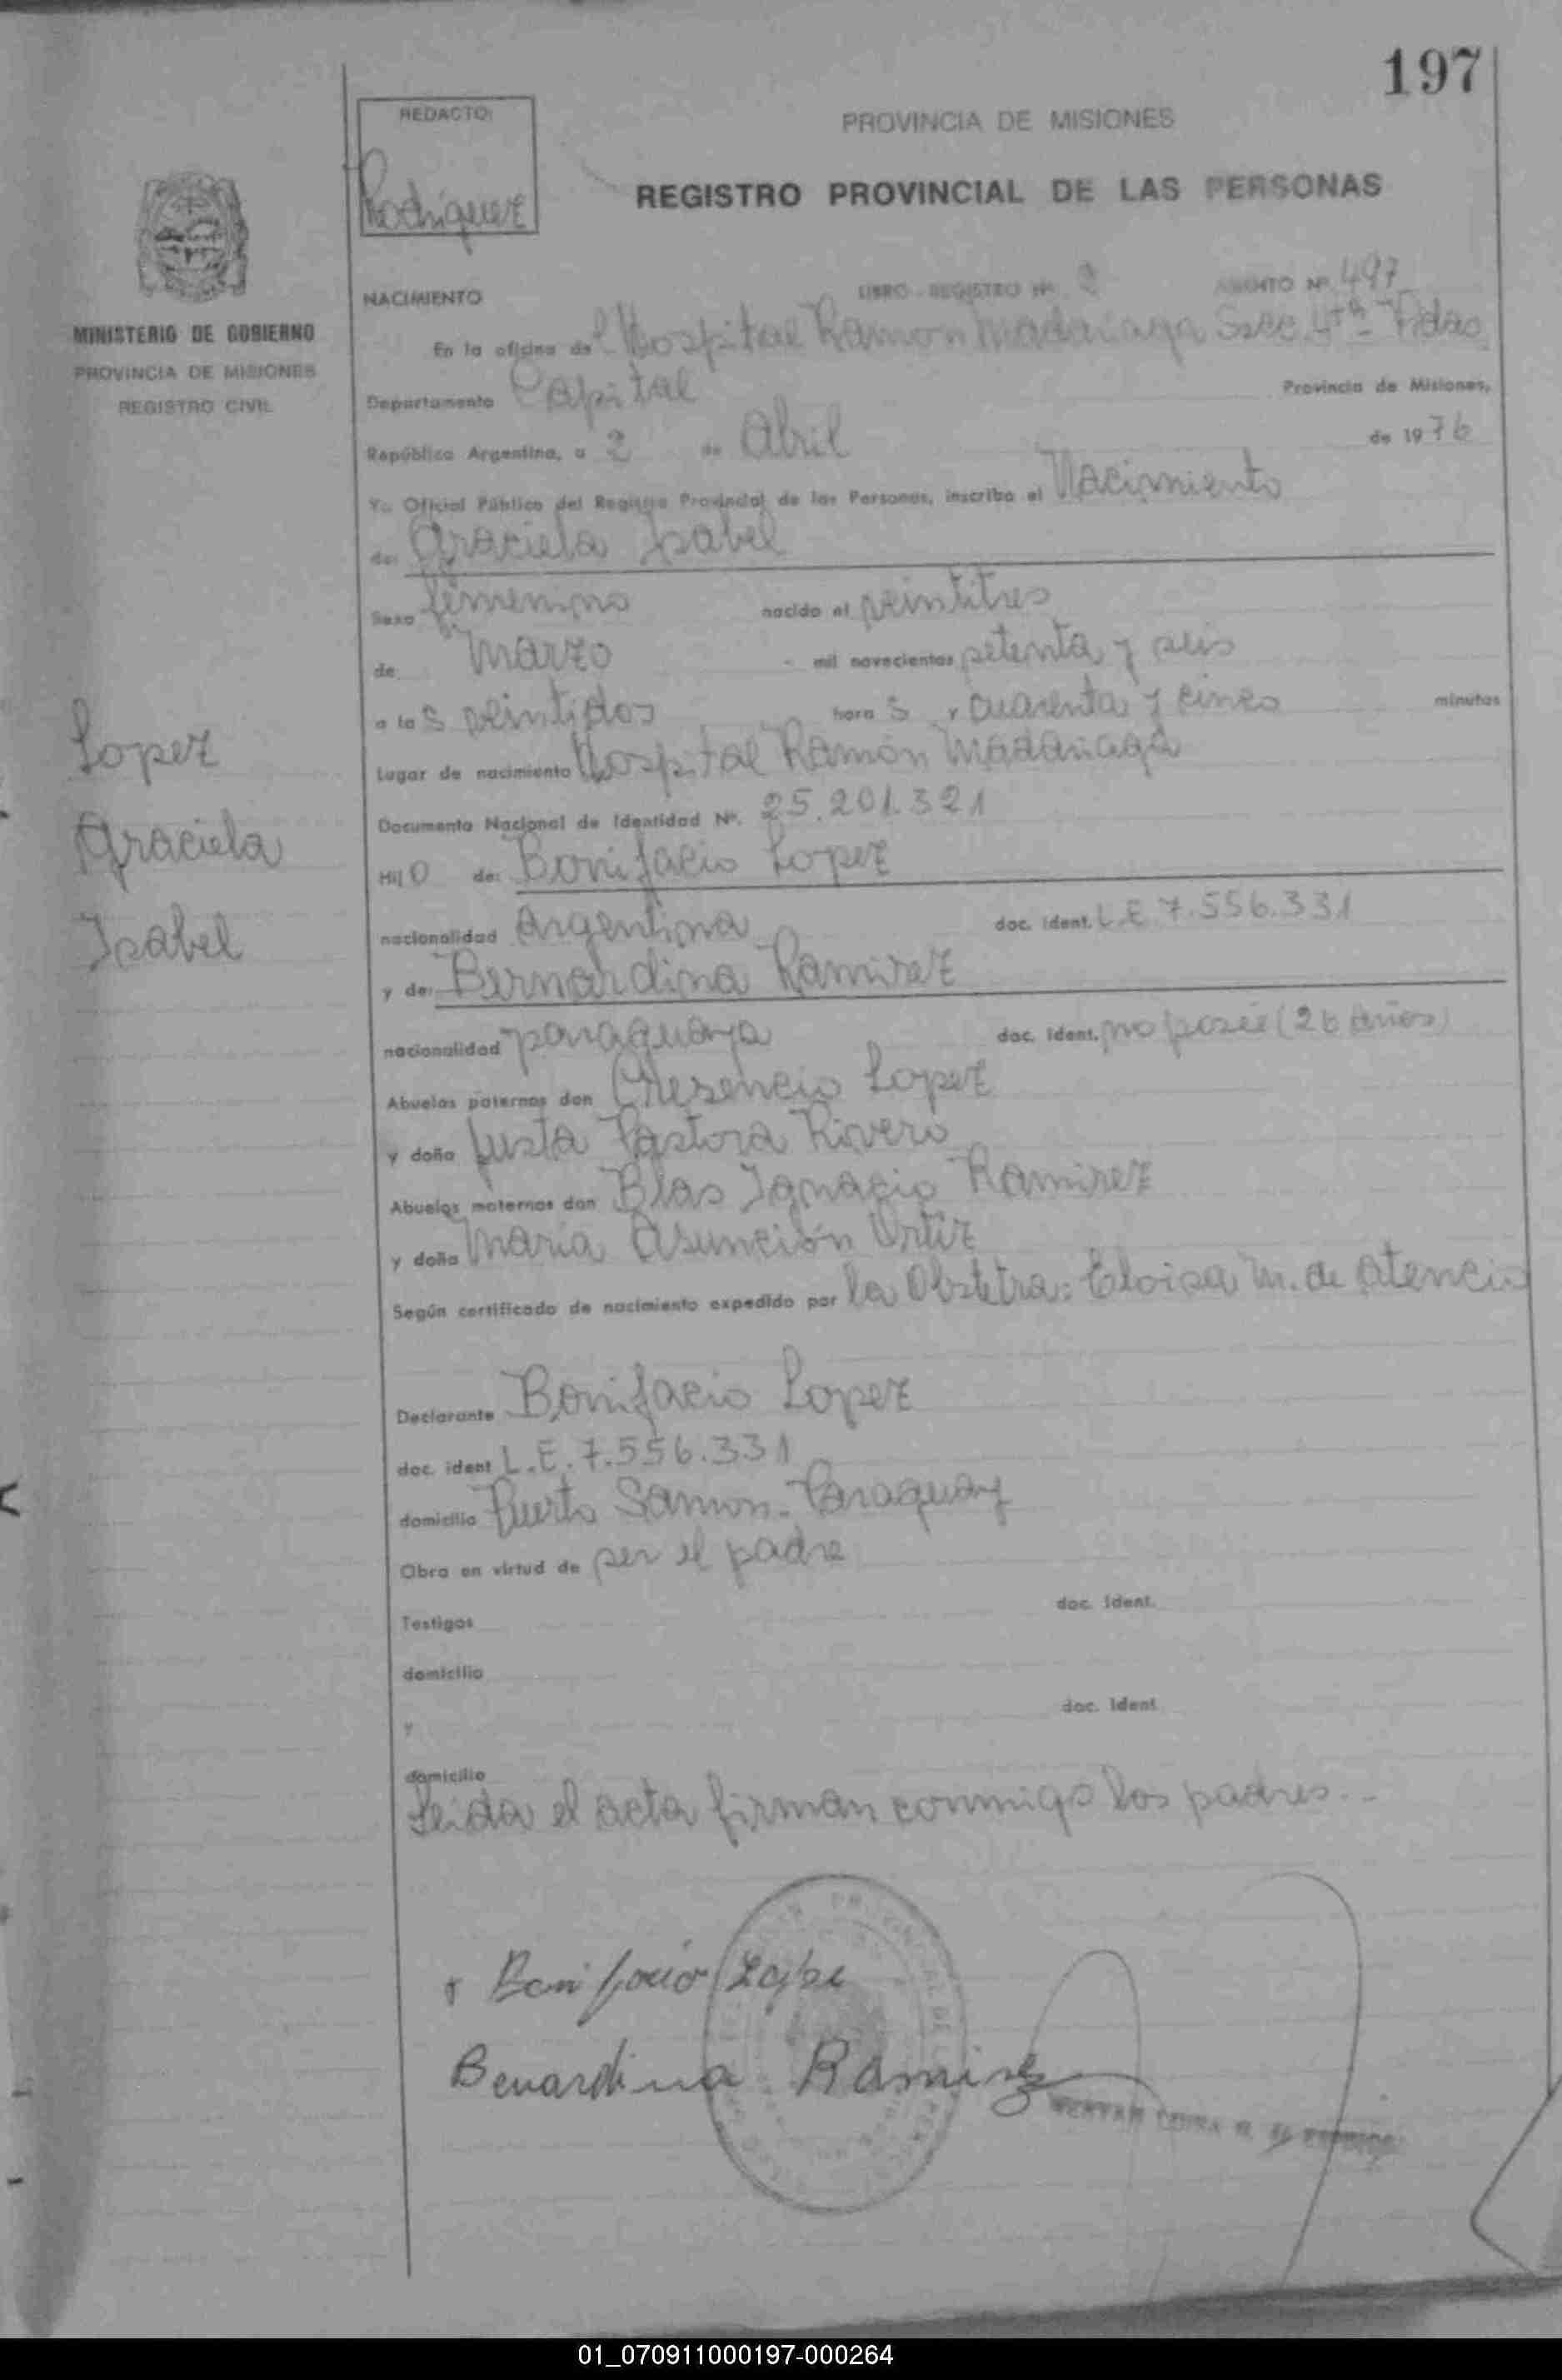 197
REDACTO:
Rodriguez
PROVINCIA DE MISIONES
REGISTRO PROVINCIAL DE LAS PERSONAS
MINISTERIO DE GOBIERNO
PROVINCIA DE MISIONES
REGISTRO CIVIL
NACIMIENTO LIBRO - REGISTRO Nº ASIENTO Nº 497
En la oficina del Hospital Ramon Madariaga Secc. 4ta - Pdas
Departamento Capital Provincia de Misiones,
República Argentina, a 2 de Abril de 1976
Yo, Oficial Público del Registro Provincial de las Personas, inscribo el Nacimiento
de: Graciela Isabel
Sexo femenino nacido el veintitres
de Marzo mil novecientos setenta y seis
a las veintidos horas y cuarenta y cinco minutos
Lugar de nacimiento Hospital Ramón Madariaga
Documento Nacional de Identidad Nº. 25.201.321
Hijo de: Bonifacio Lopez
nacionalidad Argentina doc. ident. L.E 7.556.331
y de: Bernardina Ramirez
nacionalidad paraguaya doc. ident. no posee (26 años)
Abuelos paternos don Cresencio Lopez
y doña Justa Pastora Rivero
Abuelos maternos don Blas Ignacio Ramirez
y doña Maria Asunción Ortiz
Según certificado de nacimiento expedido por la Obstetra: Eloisa M. de Atencio
Lopez
Graciela
Isabel
Declarante Bonifacio Lopez
doc. ident L.E. 7.556.331
domicilio Puerto Samon - Paraguay
Obra en virtud de ser el padre
Testigos doc. ident.
domicilio
y doc. ident
domicilio
Leida el acta firman conmigo los padres.-
Bonifacio Lope
Benardina Ramirez
01_070911000197-000264